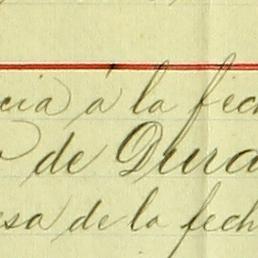 cia á la fech
o de Dura
esa de la fech